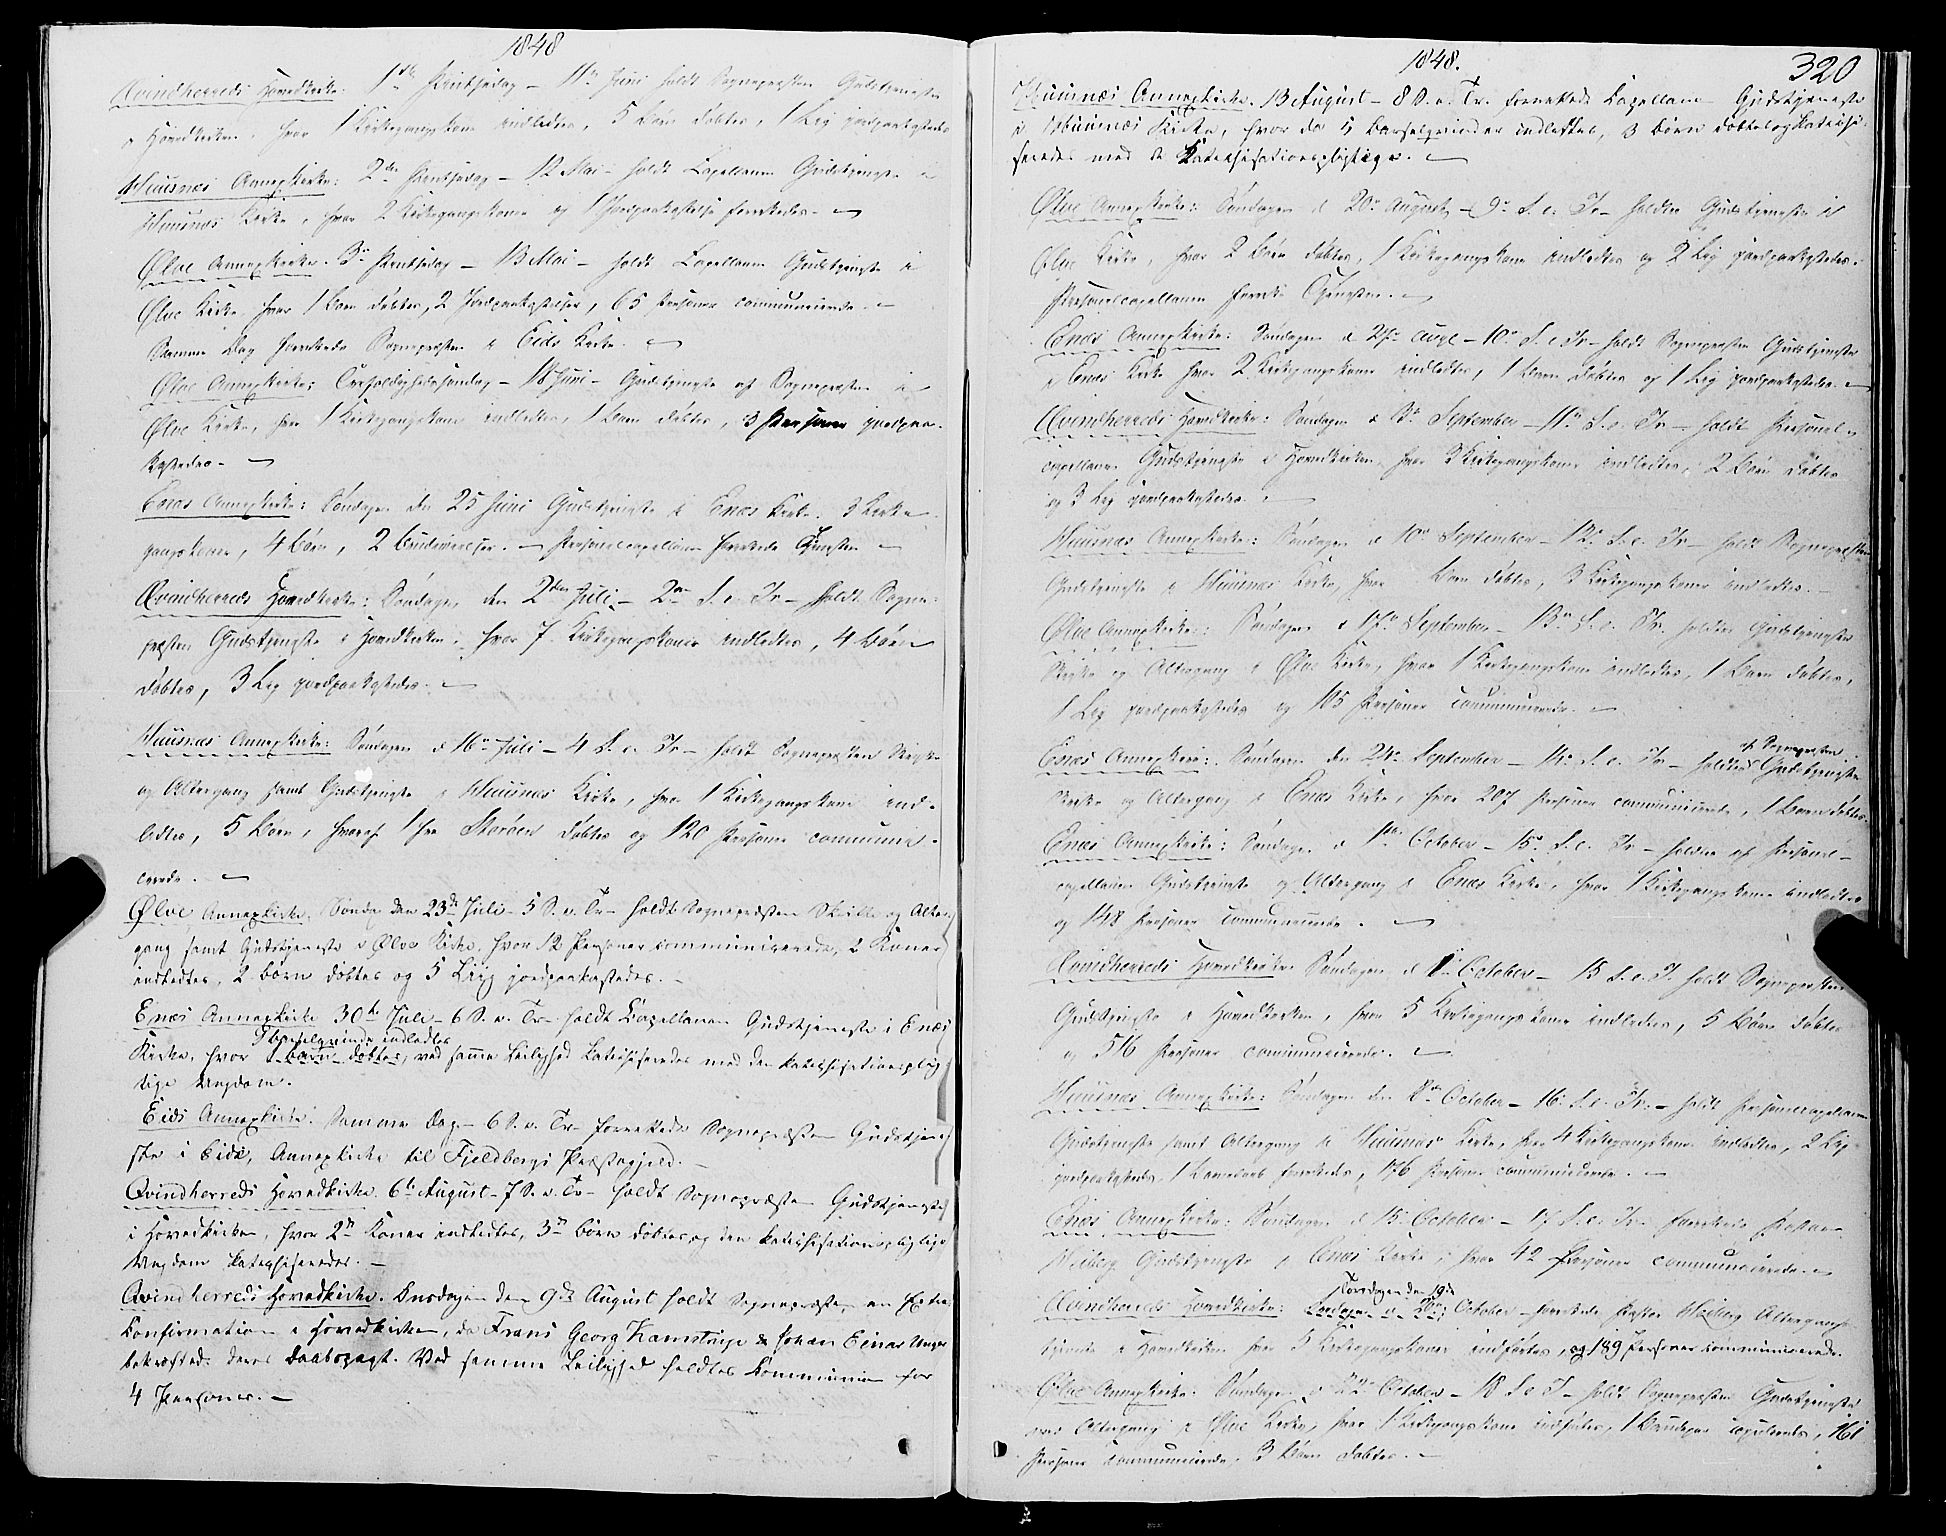 1848
Qvindherreds Hovedkirke: 1ste Pintsedag – 11te Juni holdt Sognepræsten Gudstjeneste
i Hovedkirken, hvor 1 Kirkegangskone indledtes, 5 Børn døbtes, 1 Lig jordpaakastedes
Huusnæs Annexkirke: 2den Pintsedag – 12 Mai – holdt Capellanen Gudstjeneste i
Huusnæs Kirke, hvor 2 Kirkegangskoner og 1 Jordpaakastelse forrettedes. –
Ølve Annexkirke. 3die Pintsedag – 13 Mai – holdt Capellanen Gudstjeneste i
Ølve Kirke, hvor 1 Barn døbtes, 2 Jordpaakastelser, 65 Personer communicerede. –
Samme Dag forrettede Sognepræsten i Eids Kirke. –
Ølve Annexkirke: Trefoldighedssøndag – 18 Juni – Gudstjeneste af Sognepræsten i
Ølve Kirke, hvor 1 Kirkegangskone indledtes, 1 Barn døbtes, 3 Personer jordpaa-
kastedes. –
Enæs Annexkirke: Søndagen den 25 Juni Gudstjeneste i Enæs Kirke. 3 Kirke
gangskoner, 4 Børn, 2 Brudevielser. – Personelcapellanen forrettede Tjenesten –
Qvindherreds Hovedkirke: Søndagen den 2den Juli – 2den S. e. Tr – holdt Sogne-
præsten Gudstjeneste i Hovedkirken, hvor 7 Kirkegangskoner indledtes, 4 Børn
døbtes, 3 Lig jordpaakastedes. –
Huusnæs Annexkirke: Søndagen d 16de Juli – 4 S. e. Tr – holdt Sognepræsten Skrifte
og Altergang samt Gudstjeneste i Huusnæs Kirke, hvor 1 Kirkegangskone ind-
ledtes, 5 Børn, hvoraf 1 fra Storøen døbtes og 120 Personer communi-
cerede. –
Ølve Annexkirke. Søndag den 23de Juli – 5 S. e. Tr – holdt Sognepræsten Skrifte og Alter-
gang samt Gudstjeneste i Ølve Kirke, hvor 12 Personer communicerede, 2 Koner
indledtes, 2 Børn døbtes og 5 Liig jordpaakastedes. –
Enæs Annexkirke 30te Juli – 6 S. e. Tr – holdt Capellanen Gudstjeneste i Enæs
Kirke, hvor 1 Barselqvinde indledtes 1 Barn døbtes, ved samme Leilighed Katechiseredes med den katechisationsplig
tige Ungdom.
Eids Annexkirke. Samme Dag – 6 S. e. Tr – forrettede Sognepræsten Gudstjene
ste i Eids, Annexkirke til Fjeldbergs Præstegjeld. –
Qvindherreds Hovedkirke 6te August – 7 S. e. Tr – holdt Sognepræsten Gudstjeneste
i Hovedkirken, hvor 2de Koner indledtes, 3de Børn døbtes, og den katechisationspligtige
Ungdom katechiseredes. –
Qvindherreds Hovedkirke. Onsdagen den 9de August holdt Sognepræsten en Extra
Confirmation i Hovedkirken, da Frans Georg Kamstrup & Johan Einar Unger
bekræftede deres Daabspagt. Ved samme Leilighed holdtes Communion for
4 Personer. –
1848.
320
Huusnæs Annexkirke. 13 August – 8 S. e. Tr. forrettede Capellanen Gudstjeneste
i Huusnæs Kirke, hvor da 5 Barselqvinder indledtes, 3 Børn døbtes og Katechi-
seredes med de Katechisationspligtige. –
Ølve Annexkirke: Søndagen d 20de August – 9de S. e. Tr – holdtes Gudstjeneste i
Ølve Kirke, hvor 2 Børn døbtes, 1 Kirkegangskone indledtes og 2 Lig jordpaakastedes.
Personelcapellanen forrettede Tjenesten. –
Enæs Annexkirke: Søndagen d 27de Aug – 10de S. e Tr – holdt Sognepræsten Gudstjeneste
i Enæs Kirke hvor 2 Kirkegangskoner indledtes, 1 Barn døbtes og 1 Lig jordpaakastedes. –
Qvindherreds Hovedkirke: Søndagen d 3die September – 11te S. e. Tr – holdt Personel-
capellanen Gudstjeneste i Hovedkirken, hvor 3 Kirkegangskoner indledtes, 2 Børn døbtes
og 3 Lig jordpaakastedes. –
Huusnæs Annexkirke: Søndagen d 10de September – 12te S. e. Tr – holdt Sognepræsten
Gudstjeneste i Huusnæs Kirke, hvor Børn døbtes, 3 Kirkegangskoner indledtes. –
Ølve Annexkirke: Søndagen d 17de September – 13de S. e. Tr. holdtes Gudstjeneste
Skrifte og Altergang i Ølve Kirke, hvor 1 Kirkegangskone indledtes, 1 Barn døbtes,
1 Lig jordpaakastedes og 105 Personer communicerede. –
Enæs Annexkirke: Søndagen den 24de September – 14de S. e. Tr – holdtes af Sognepræsten Gudstjeneste
Skrifte og Altergang i Enæs Kirke, hvor 207 Personer communicerede, 1 Barn døbtes.
Enæs Annexkirke: Søndagen d 1ste October – 15de S. e. Tr – holdtes af Personel-
capellanen Gudstjeneste og Altergang i Enæs Kirke, hvor 1 Kirkegangskone indledtes
og 148 Personer communicerede. –
Qvindherreds Hovedkirke Søndagen d 1ste October – 15 S. e. Tr holdt Sognepræsten
Gudstjeneste i Hovedkirken, hvor 5 Kirkegangskoner indledtes, 5 Børn døbtes
og 516 Personer communicerede. –
Huusnæs Annexkirke: Søndagen den 8de October – 16de S. e. Tr. – holdt Personelcapellanen
Gudstjeneste samt Altergang i Huusnæs Kirke, hvor 4 Kirkegangskoner indledtes, 2 Lig
jordpaakastedes, 1 Barnedaab forrettedes, 176 Personer communicerede. –
Enæs Annexkirke: Søndagen d 15 October – 17 S. e. Tr. forrettede Pastor
Meiberg Gudstjeneste i Enæs Kirke, hvor 42 Personer communicerede. –
Qvindherreds Hovedkirke: Torsdagen den 19de October – forrettede Pastor Meiberg Altergangs
tjeneste i Hovedkirken hvor 5 Kirkegangskoner indførtes, og 189 Personer communicerede.
Ølve Annexkirke: Søndagen d 22de October – 18 S. e. T – holdt Sognepræsten Gudstjeneste
med Altergang i Ølve Kirke, hvor 1 Kirkegangskone indførtes, 1 Brudepar copuleredes, 161
Personer communicerede, 3 Børn døbtes. –